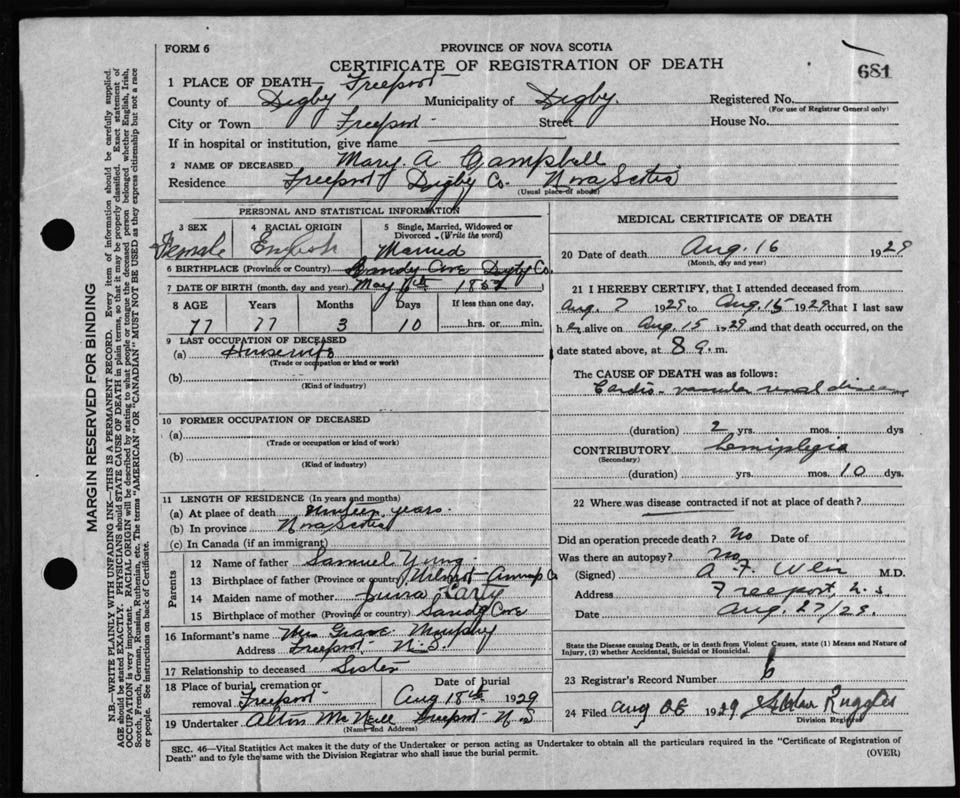 FORM 6
PROVINCE OF NOVA SCOTIA
CERTIFICATE OF REGISTRATION OF DEATH
681
1 PLACE OF DEATH— Freeport
County of Digby Municipality of Digby. Registered No.
(For use of Registrar General only)
City or Town Freeport Street House No.
If in hospital or institution, give name
2 NAME OF DECEASED Mary A Campbell
Residence Freeport Digby Co. Nova Scotia
(Usual place of abode)
PERSONAL AND STATISTICAL INFORMATION
3 SEX 4 RACIAL ORIGIN 5 Single, Married, Widowed or Divorced (Write the word)
Female English Married
6 BIRTHPLACE (Province or Country) Cove Digby Co.
7 DATE OF BIRTH (month, day and year) May 1852
8 AGE Years Months Days If less than one day,
77 77 3 10 hrs. or min.
9 LAST OCCUPATION OF DECEASED
(a) Housewife
(Trade or occupation or kind or work)
(b)
(Kind of industry)
10 FORMER OCCUPATION OF DECEASED
(a)
(Trade or occupation or kind of work)
(b)
(Kind of industry)
11 LENGTH OF RESIDENCE (In years and months)
(a) At place of death years.
(b) In province Nova Scotia
(c) In Canada (if an immigrant)
Parents
12 Name of father Samuel Young
13 Birthplace of father (Province or country) Wilmot Annap Co
14 Maiden name of mother
15 Birthplace of mother (Province or country) Sandy Cove
16 Informant's name Mrs Grace Murphy
Address Freeport N.S.
17 Relationship to deceased Sister
18 Place of burial, cremation or removal Freeport Date of burial Aug 18th 1929
19 Undertaker McNeill Freeport N.S
(Name and Address)
MEDICAL CERTIFICATE OF DEATH
20 Date of death Aug. 16 1929
(Month, day and year)
21 I HEREBY CERTIFY, that I attended deceased from
Aug. 7 1929 to Aug 15 1929 that I last saw
her alive on Aug. 15 1929 and that death occurred, on the
date stated above, at 8 a.m.
The CAUSE OF DEATH was as follows:
Cardio-vascular renal disease
(duration) 2 yrs. mos. dys
CONTRIBUTORY hemiplegia
(Secondary)
(duration) yrs. mos. 10 dys.
22 Where was disease contracted if not at place of death?
Did an operation precede death? No Date of
Was there an autopsy? No
(Signed) A. F. Weir M.D.
Address Freeport N.S.
Date Aug. 27/29.
State the Disease causing Death, or in death from Violent Causes, state (1) Means and Nature of
Injury, (2) whether Accidental, Suicidal or Homicidal.
23 Registrar's Record Number 6
24 Filed Aug 28 1929 Ruggles
Division Registrar
SEC. 46—Vital Statistics Act makes it the duty of the Undertaker or person acting as Undertaker to obtain all the particulars required in the "Certificate of Registration of
Death" and to fyle the same with the Division Registrar who shall issue the burial permit.
(OVER)
MARGIN RESERVED FOR BINDING
N.B.—WRITE PLAINLY WITH UNFADING INK—THIS IS A PERMANENT RECORD. Every item of information should be carefully supplied.
AGE should be stated EXACTLY. PHYSICIANS should STATE CAUSE OF DEATH in plain terms, so that it may be properly classified. Exact statement of
OCCUPATION is very important. RACIAL ORIGIN will be described by stating to what people or tongue the deceased person belonged whether English, Irish,
Scotch, French, German, Russian, Ruthenian, etc. The terms "AMERICAN" OR "CANADIAN" MUST NOT BE USED as they express citizenship but not a race
or people. See instructions on back of Certificate.